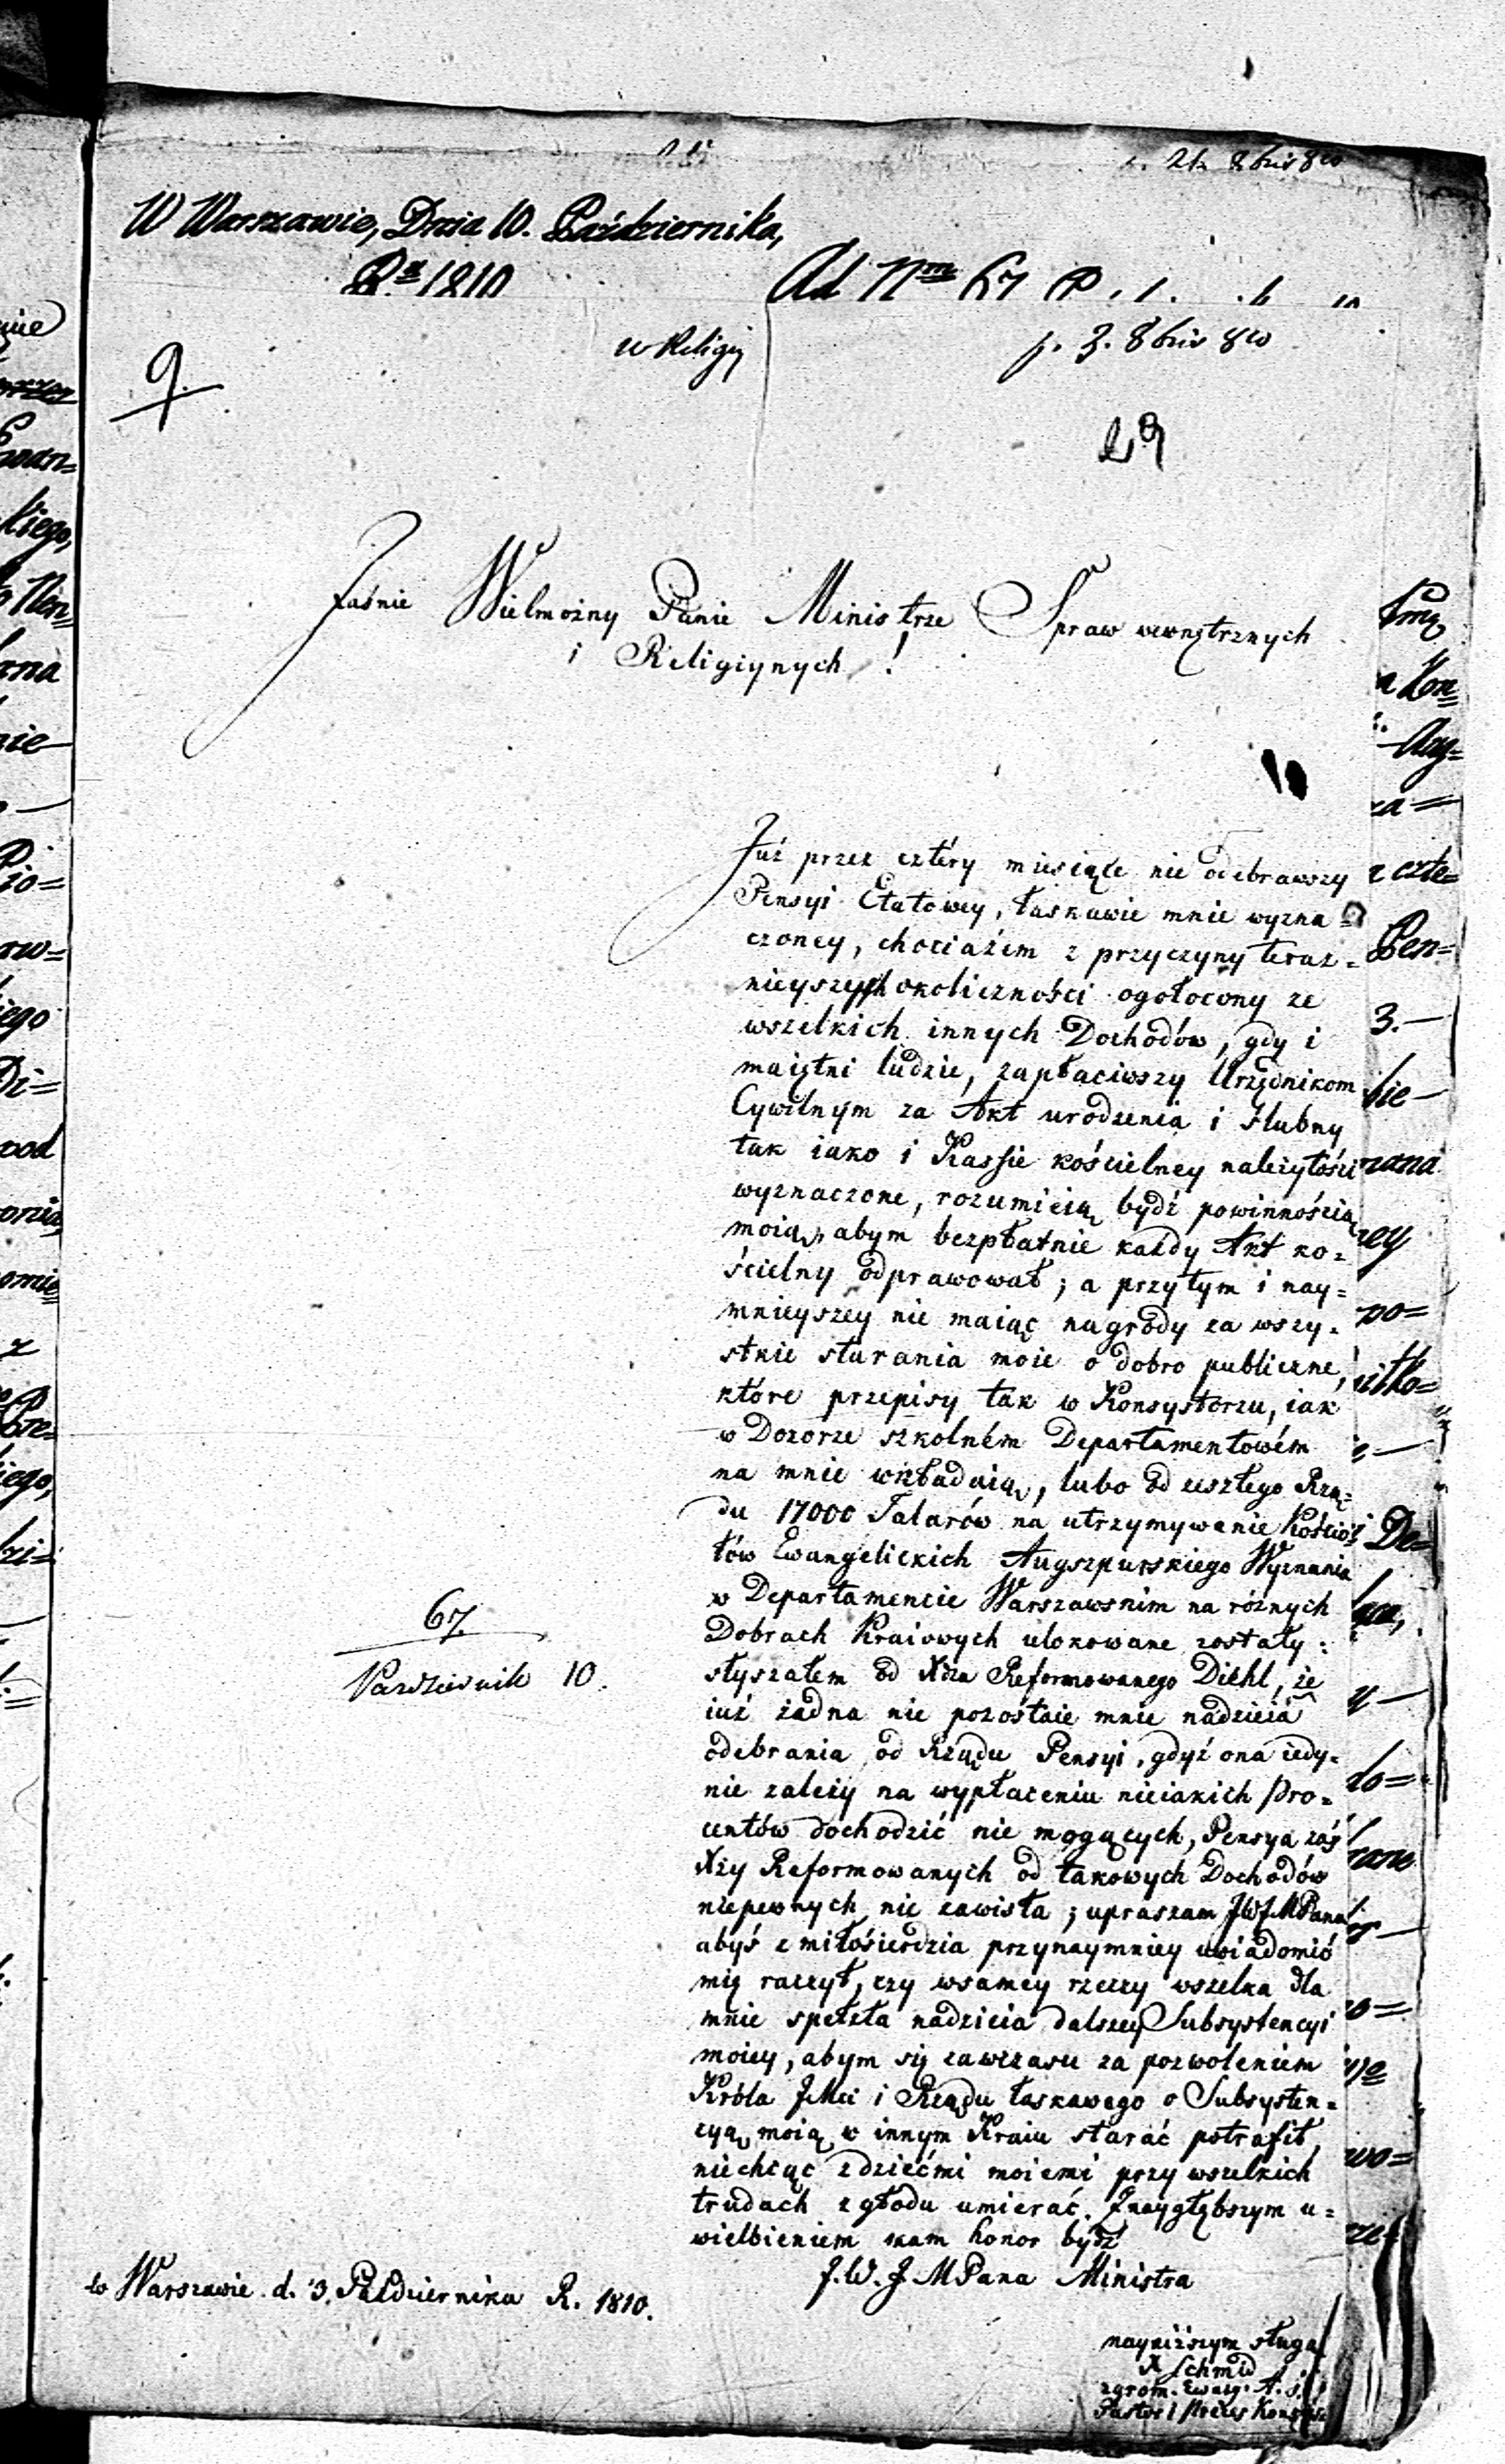 W Warszawie, Dnia 10. Października,
Ra 1810
Ad Nm 67 P. 1.
w Religij
p. 3. 8bris 810
9.
29
Jaśnie Wielmożny Panie Ministrze Spraw wewnętrznych
i Religiynych!
Już przez cztéry miesiące nie odebrawszy
Pensyi Etatowey, łaskawie mnie wyzna=
czoney, chociażem z przyczyny teraz=
nieyszych okoliczności ogołocony ze
wszelkich innych Dochodów, gdy i
maiętni ludzie, zapłaciwszy Urzędnikom
Cywilnym za Akt urodzenia i ślubny
tak iako i Kassie kościelney należytości
wyznaczone, rozumieią bydź powinnością
moią, abym bezpłatnie każdy Akt ko=
ścielny odprawował; a przytym i nay=
mnieyszey nie maiąc nagrody za wszy=
stkie starania moie o dobro publiczne,
które przepisy tak w Konsystorzu, iak
w Dozorze szkolném Departamentowém
na mnie wkładaią, lubo od zeszłego Rzą=
du 17000 Talarów na utrzymywanie Kościo=
łów Ewangelickich Augszpurskiego Wyznania
w Departamencie Warszawskim na róznych
Dobrach Kraiowych ulokowane zostały:
słyszałem od Xdza Reformowanego Diehl, że
iuż żadna nie pozostaie mnie nadzieia
odebrania od Rządu Pensyi, gdyż ona iedy=
nie zależy na wypłaceniu nieiakich Pro=
centów dochodzić nie mogących, Pensya zaś
Xży Reformowanych od takowych Dochodów
niepewnych nie zawisła; upraszam JWJMPana
abyś z miłosierdzia przynaymniey uwiadomić
mię raczył, czy wsamey rzeczy wszelka dla
mnie spełzła nadzieia dalszey Subsystencyi
moiey, abym się zawczasu za pozwoleniem
Króla JMci i Rządu łaskawego o Subsysten=
cyą moią w innym Kraiu starać potrafił,
niechcąc z dziećmi moiemi przy wszelkich
trudach z głodu umierać. Z naygłębszym u=
wielbieniem mam honor bydź
J. W. J. MPana Ministra
67.
Pazdziernik 10.
w Warszawie d. 3. Października R. 1810.
nayniższym sługą
X Schmid
zgrom. Ewang. A.
Pastor i Prezes